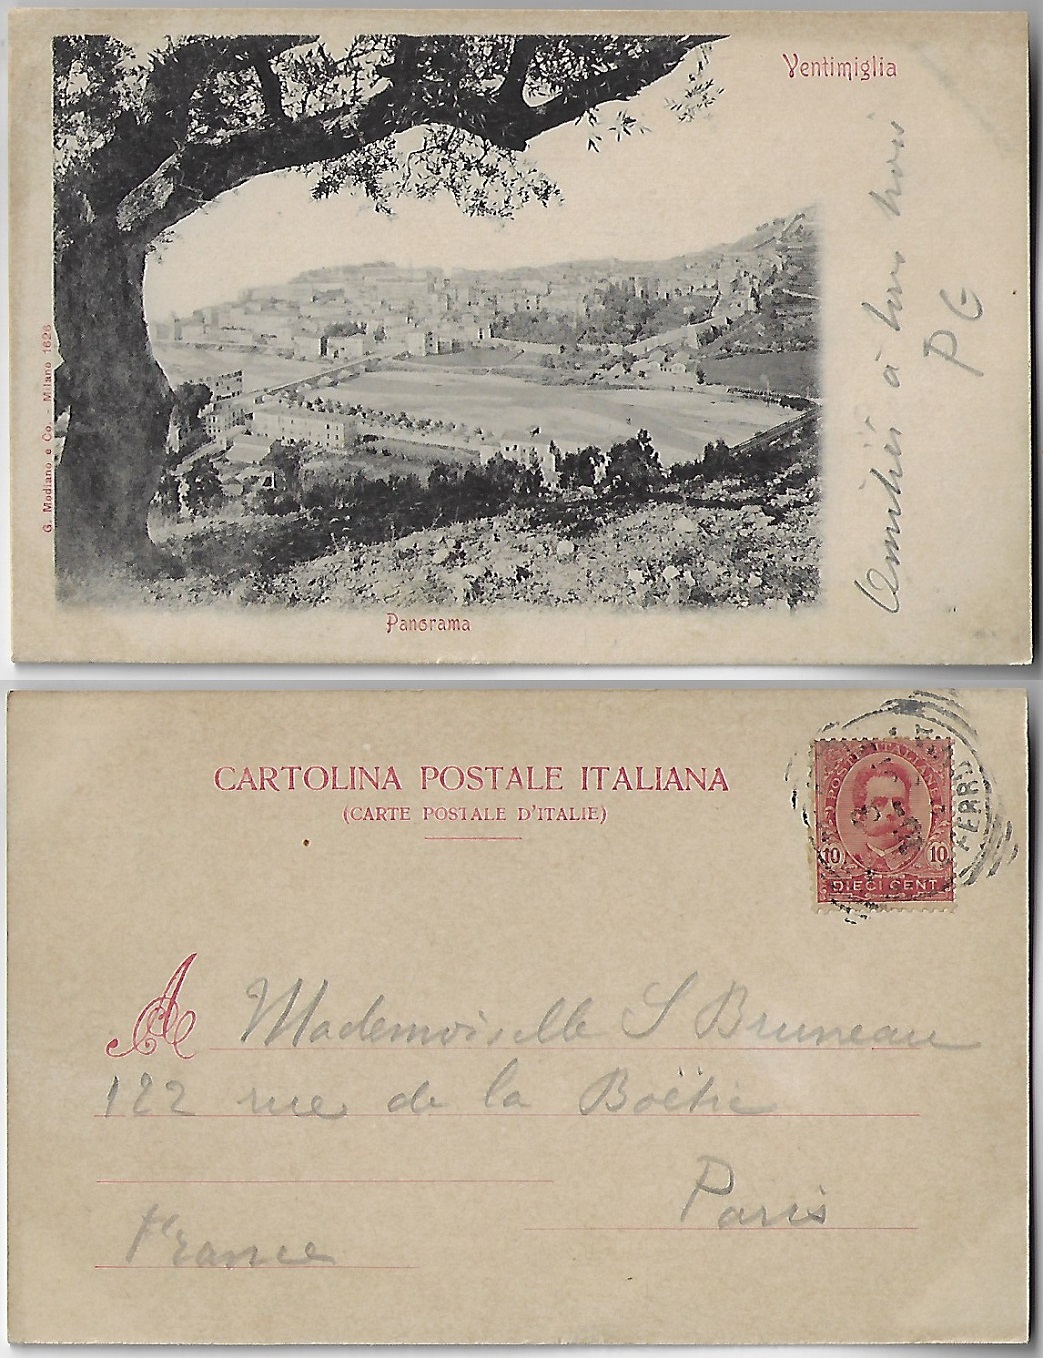 Ventimiglia
Amitiés à tous trois
P G
G. Modiano e Co. - Milano 1628
Panorama
CARTOLINA POSTALE ITALIANA
(CARTE POSTALE D'ITALIE)
POSTE ITALIANE
10 10
DIECI CENT.
FERR
A Mademoiselle S Bruneau
122 rue de la Boëtie
Paris
France